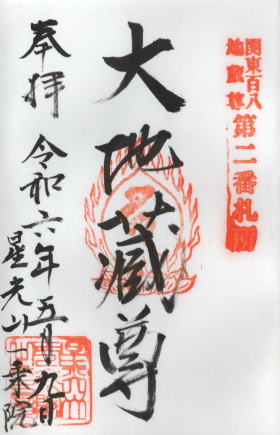 関東百八
地蔵尊
第二番札所
大地蔵尊
奉拝
令和六年五月九日
星光山一乗院